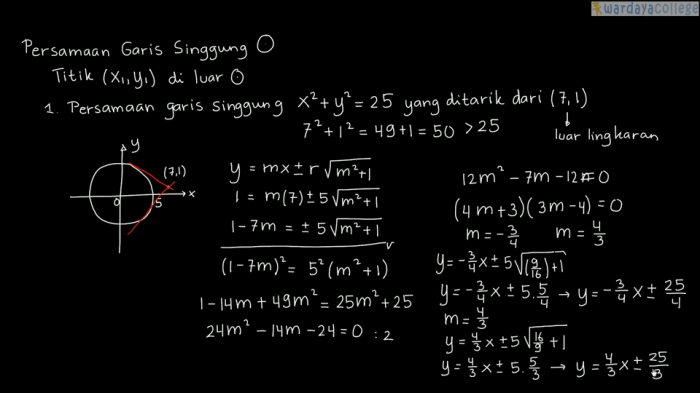 wardayacollege
Persamaan Garis Singgung O
Titik (x₁, y₁) di luar O
1. Persamaan garis singgung x² + y² = 25 yang ditarik dari (7,1)
7² + 1² = 49 + 1 = 50 > 25
luar lingkaran
y
(7,1)
x
0
5
y = mx ± r√(m²+1)
1 = m(7) ± 5√(m²+1)
1 - 7m = ± 5√(m²+1)
(1 - 7m)² = 5² (m² + 1)
1 - 14m + 49m² = 25m² + 25
24m² - 14m - 24 = 0 : 2
12m² - 7m - 12 = 0
(4m + 3)(3m - 4) = 0
m = -3/4 m = 4/3
y = -3/4 x ± 5√((9/16) + 1)
y = -3/4 x ± 5 . 5/4 → y = -3/4 x ± 25/4
m = 4/3
y = 4/3 x ± 5√(16/9 + 1)
y = 4/3 x ± 5 . 5/3 → y = 4/3 x ± 25/3